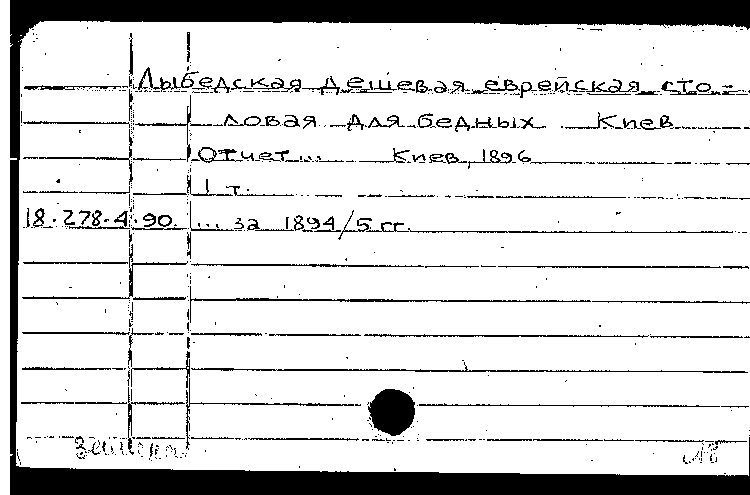 Лыбедская дешевая еврейская сто-
ловая для бедных Киев
Отчет... Киев, 1896
1 т.
18.278.4.90. ... за 1894/5 гг.